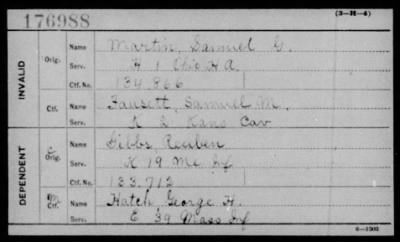 176988
(3—H—4)
INVALID
Orig.
Name Martin, Samuel G.
Serv. H 1 Ohio H A.
Ctf. No. 134,866
Ctf.
Name Fausett, Samuel M.
Serv. K 2 Kans Cav
DEPENDENT
Orig.
Name Gibbs, Reuben
Serv. K 19 Me Inf
Ctf. No. 133,712
Ctf.
Name Hatch George H.
Serv. E 39 Mass Inf